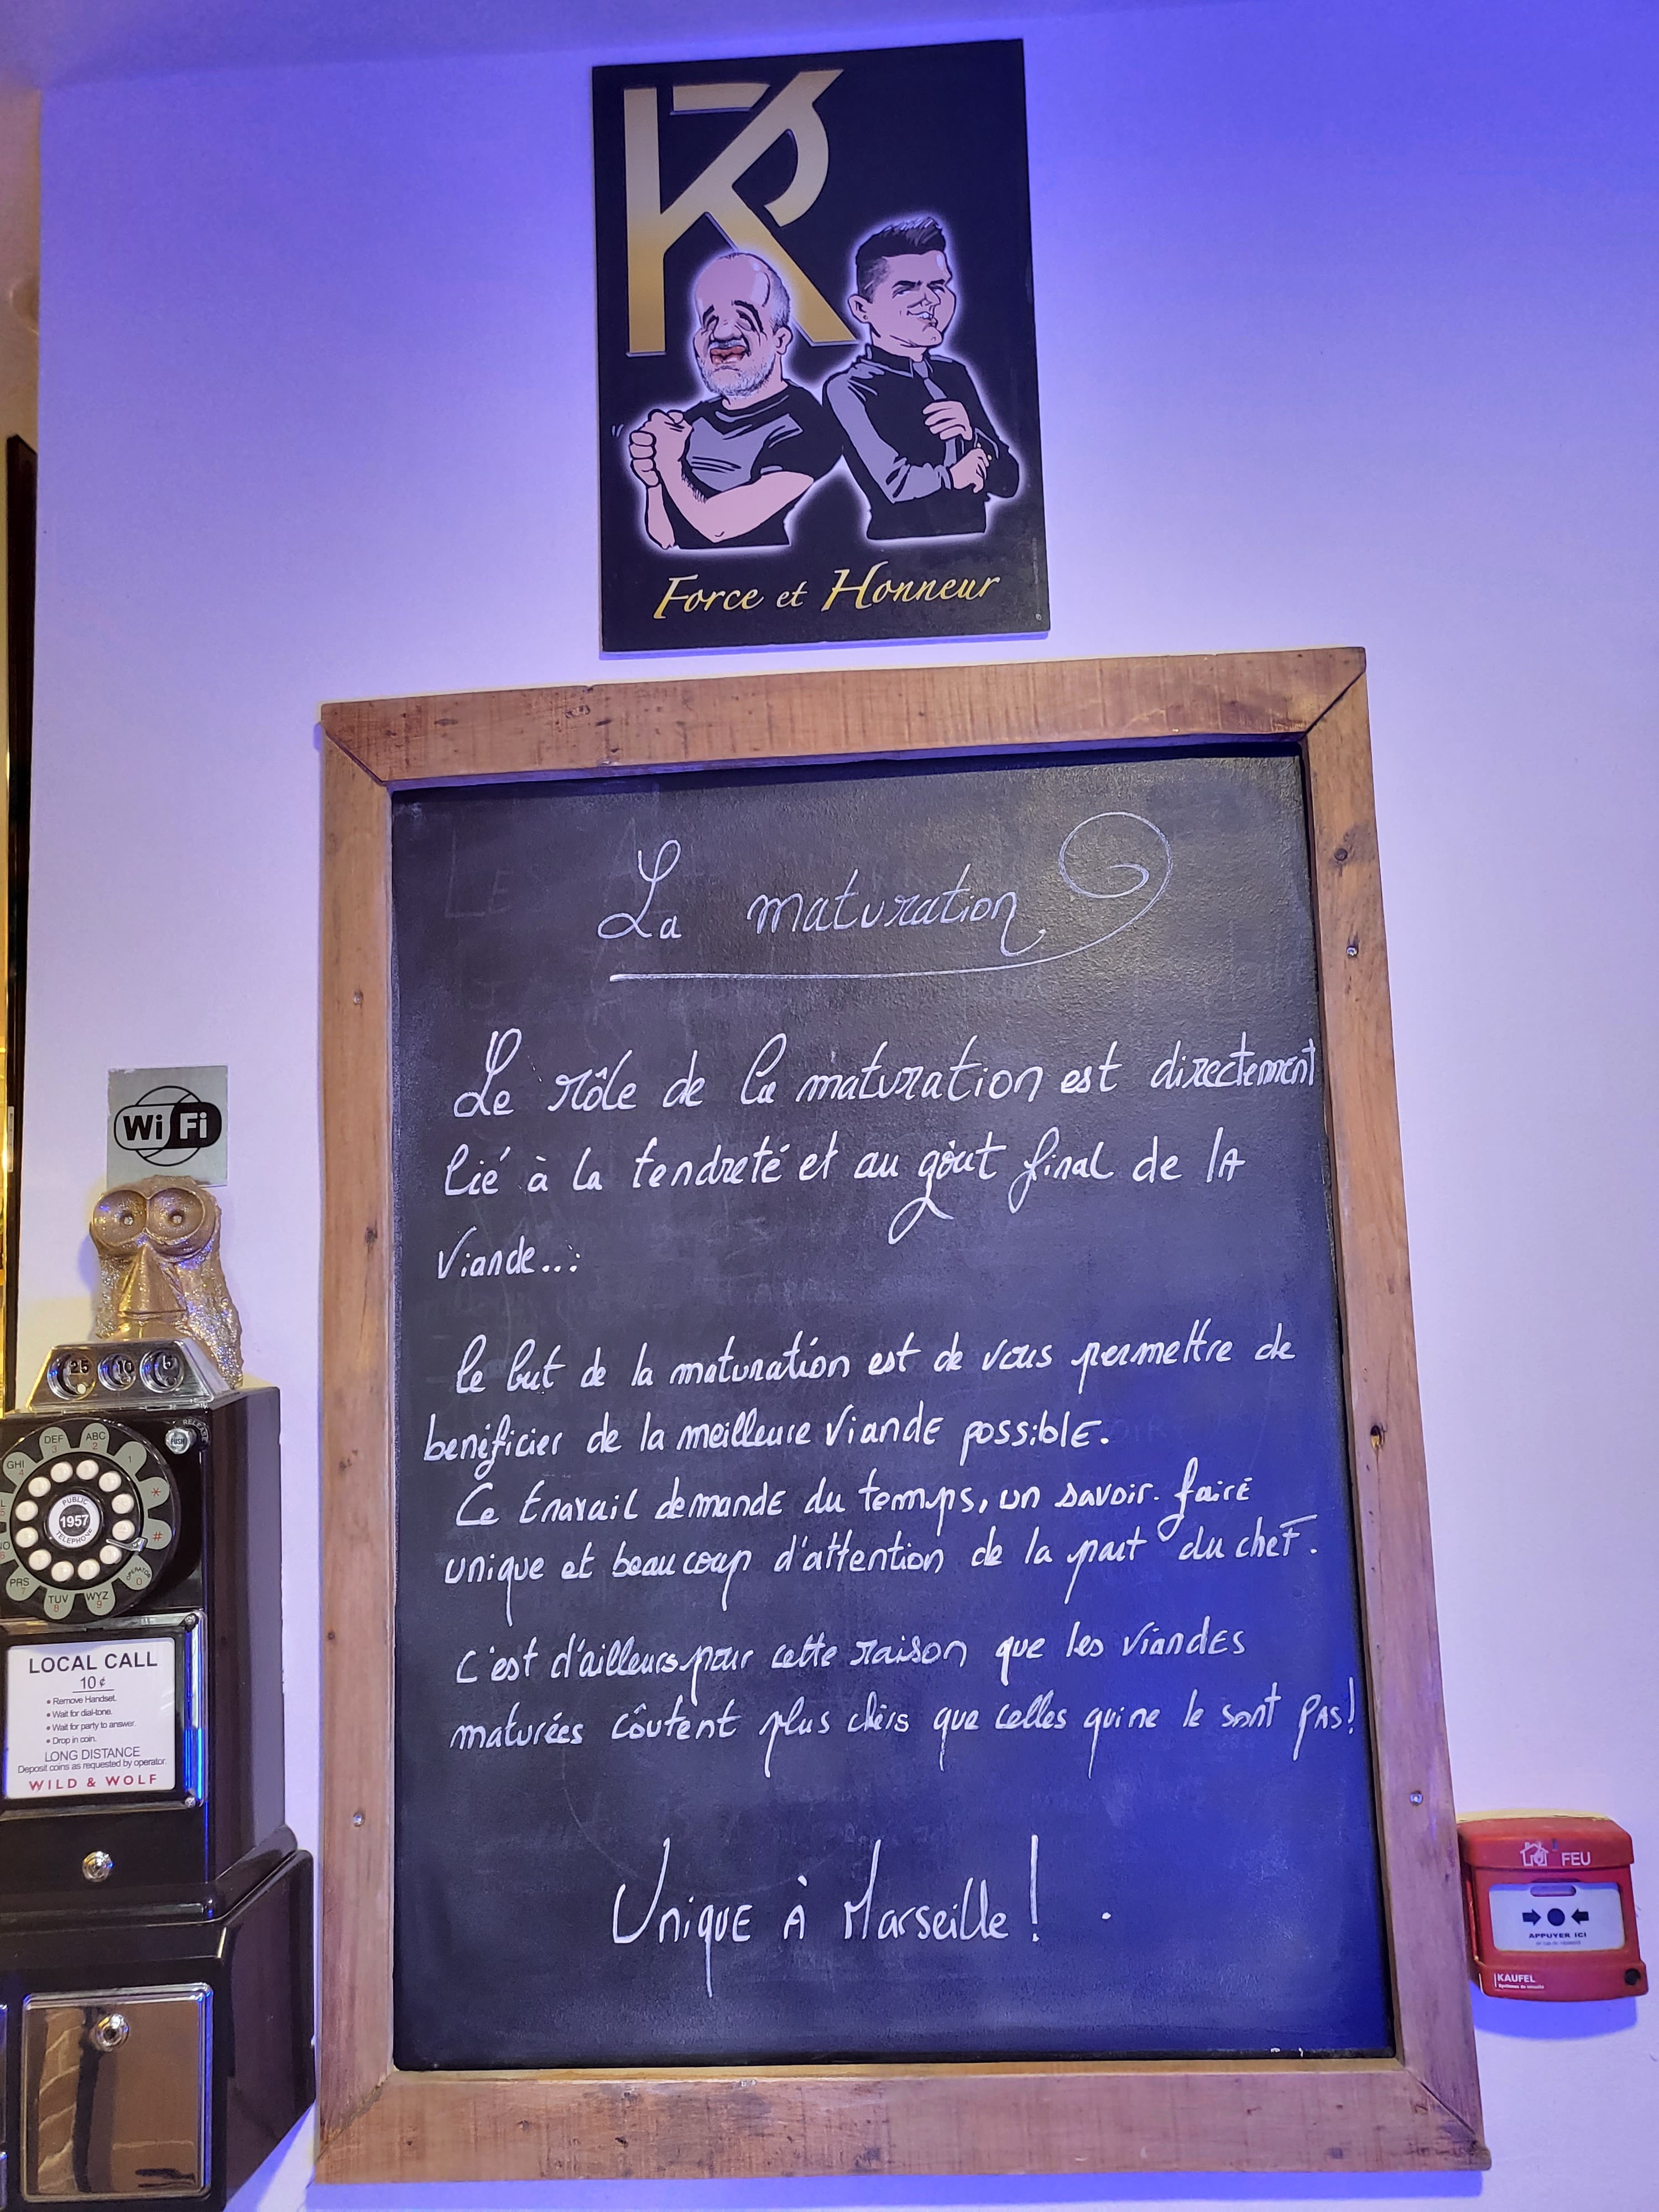 KR
Force et Honneur
La maturation
Le rôle de la maturation est directement
lié à la tendreté et au goût final de la
viande...
le but de la maturation est de vous permettre de
bénéficier de la meilleure viande possible.
Ce travail demande du temps, un savoir-faire
unique et beaucoup d'attention de la part du chef.
C'est d'ailleurs pour cette raison que les viandes
maturées côutent plus chèrs que celles qui ne le sont pas!
Unique à Marseille!
Wi Fi
25 10 5
PUSH
RELEASE
ABC 2
DEF 3
GHI 4
1
*
#
OPERATOR 0
WYZ 9
TUV 8
PRS 7
PUBLIC
1957
TELEPHONE
LOCAL CALL
10¢
• Remove Handset.
• Wait for dial-tone.
• Wait for party to answer.
• Drop in coin.
LONG DISTANCE
Deposit coins as requested by operator.
WILD & WOLF
FEU
APPUYER ICI
KAUFEL